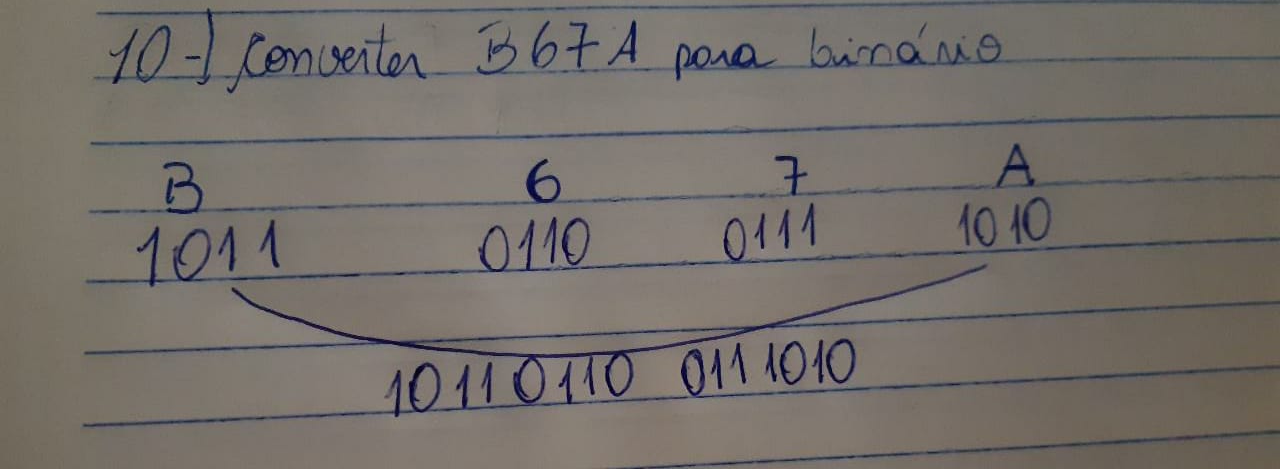 10-) Converter B67A para binário
B 6 7 A
1011 0110 0111 1010
10110110 0111010